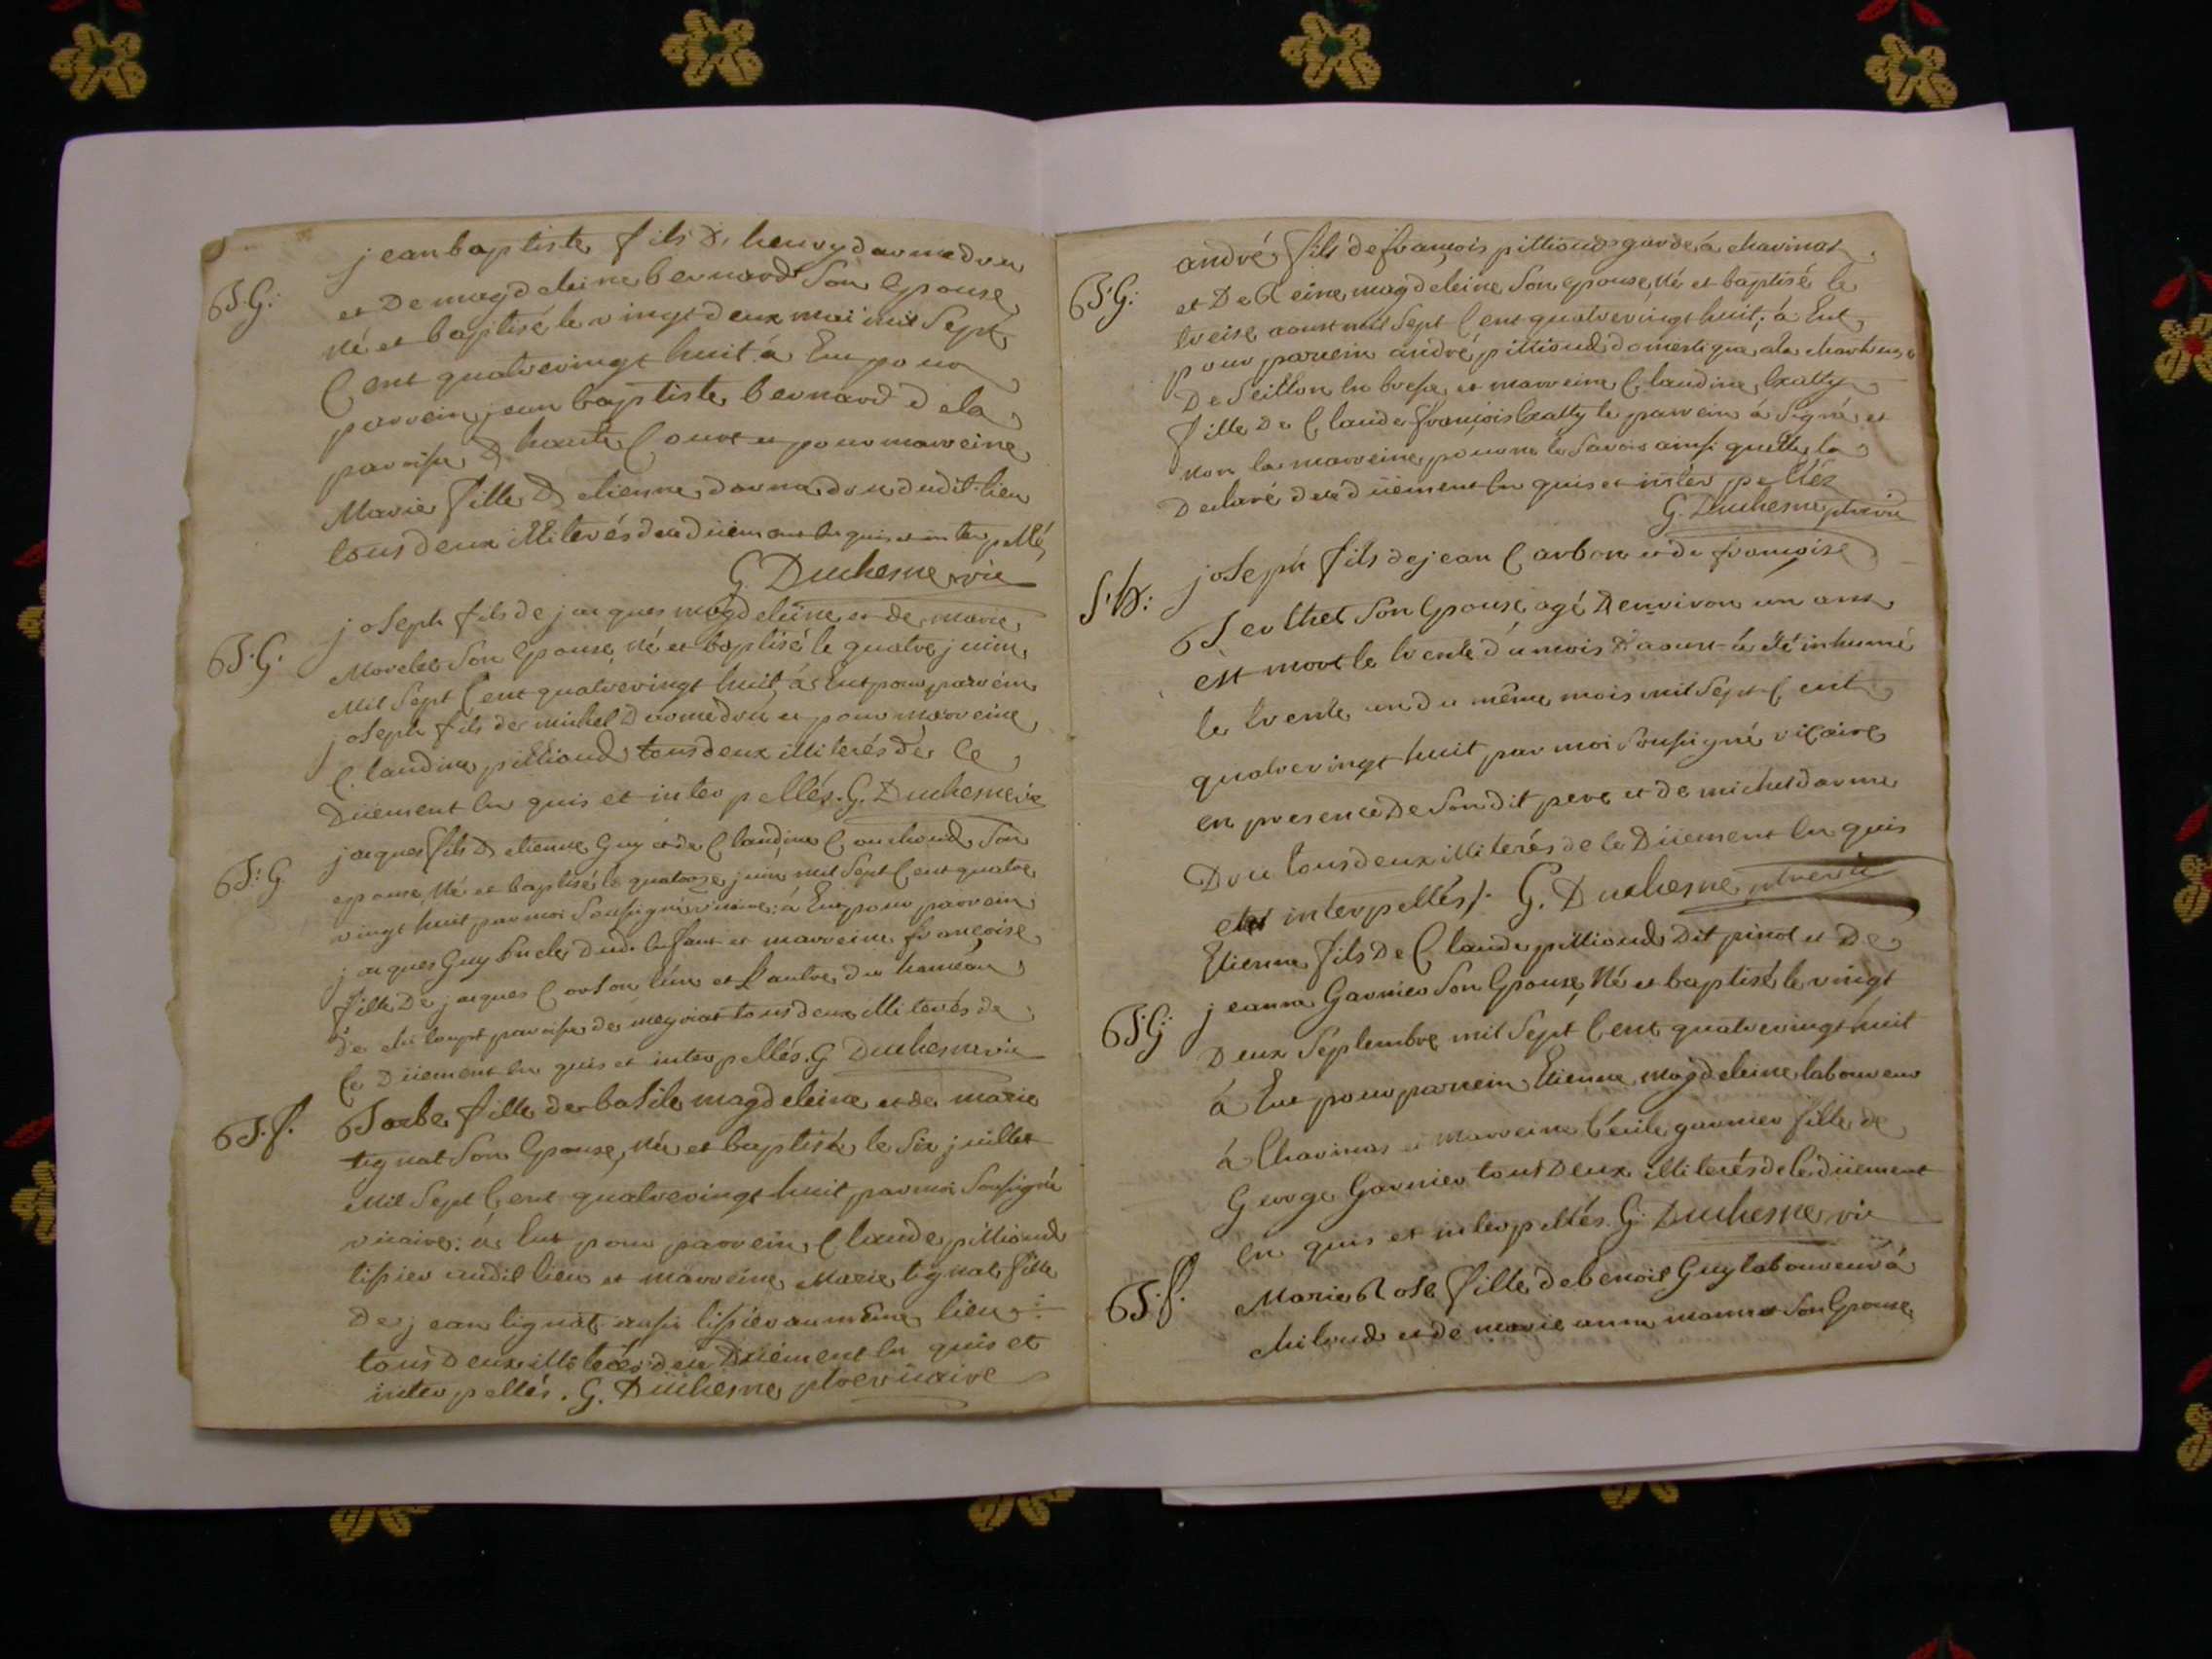 jean baptiste fils De henry darmedru
B.G. et De magdeleine bernard Son Epouse
Né et baptisé le vingt deux mai mil Sept
Cent quatrevingt huit à Eu pour
parrein jean baptiste bernard dela
paroisse D haute Court et pour marreine
Marie fille D etienne darmedru dudit lieu
tous deux illiterés de ce düement en quis et inter pellés
G. Duchesne vic
joseph fils de jacques magdeleine et de marie
B.G. Morelet Son Epouse, Né et baptisé le quatre juin
Mil Sept Cent quatrevingt huit, à Eut pour parrein
joseph fils de michel Darmedru et pour marreine
Claudine pillioud tous deux illiterés de ce
Düement en quis et inter pellés. G. Duchesne vic
jacques fils D etienne Guy et de Claudine Couchoud Son
B.G. epouse, Né et baptisé le quatorze juin mil Sept Cent quatre
vingt huit par moi Sousigné vicaire: à Eut pour parrein
jacques Guy Oncle dud. Enfant et marreine françoise
fille De jacques Corton l'un et L'autre du hameau
de chiloup paroisse de meyriat tous deux illiterés de
Ce Düement en quis et interpellés. G Duchesne vic
B.f. Barbe fille de basile magdeleine et de marie
tignat Son Epouse, Née et baptisée le Six juillet
Mil Sept Cent quatrevingt huit par moi Sousigné
vicaire: à Eut pour parrein Claude pillioud
tissier audit lieu et marreine Marie tignat fille
de jean tignat aussi tissier au même lieu:
tous Deux illiterés de ce Düement en quis et
interpellés. G. Duchesne ptre vicaire
andré fils de françois pillioud garde à chavinat
B.G. et De Reine magdeleine Son epouse, Né et baptisé le
treise aoust mil Sept Cent quatrevingt huit; à Eut
pour parrein andré pillioud domestique à la chartreuse
De Seillon en bresse et marreine Claudine
fille De Claude françois le parrein à Signé et
Non la marreine pour ne le Savoir ainsi quelle la
Declaré de ce düement en quis et inter pellés
G. Duchesne ptre vic
joseph fils de jean Carbon et de françoise
S.G: Berthet Son Epouse, agé D environ un ans
est mort le trente du mois D'aoust à été inhumé
le trente un du même mois mil Sept Cent
quatrevingt huit par moi Sousigné vicaire
en presence De Son dit pere et de michel darme
Dru tous deux illiterés de ce Düement en quis
et interpellés. G. Duchesne ptre vic
Etienne fils De Claude pillioud Dit pinot et De
B.G: jeanne Garnier Son Epouse, Né et baptisé le vingt
Deux Septembre mil Sept Cent quatrevingt huit
à Eut pour parrein Etienne magdeleine laboureur
à Chavinas et Marreine Cécile garnier fille de
George Garnier tous Deux illiterés de Ce düement
en quis et interpellés. G. Duchesne vic
B.f. Marie Rose fille de benoit Guy laboureur à
chiloud et de marie anne monnet Son Epouse